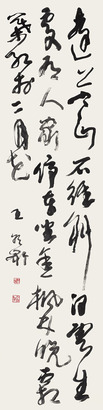 遠上寒山石徑斜白雲生
處有人家停車坐愛楓林晚霜
葉紅於二月花 王